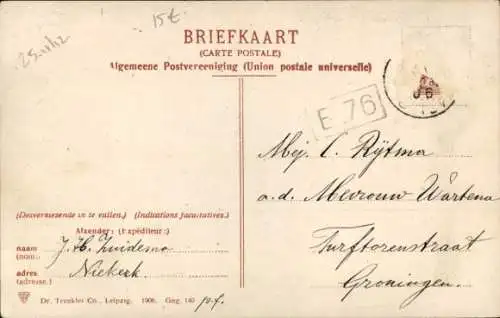 15 €
25.11.12
BRIEFKAART
(CARTE POSTALE)
Algemeene Postvereeniging (Union postale universelle)
06
E 76
Mej. C. Rÿtma
a.d. Mevrouw Wartena
Turftorenstraat
Groningen.
(Desverwezende in te vullen.) (Indications facultatives.)
Afzender: (Expéditeur:)
naam J. H. Zuidema
(nom:.
adres Niekerk
(adresse.)
Dr. Trenkler Co., Leipzig. 1906. Gng. 140